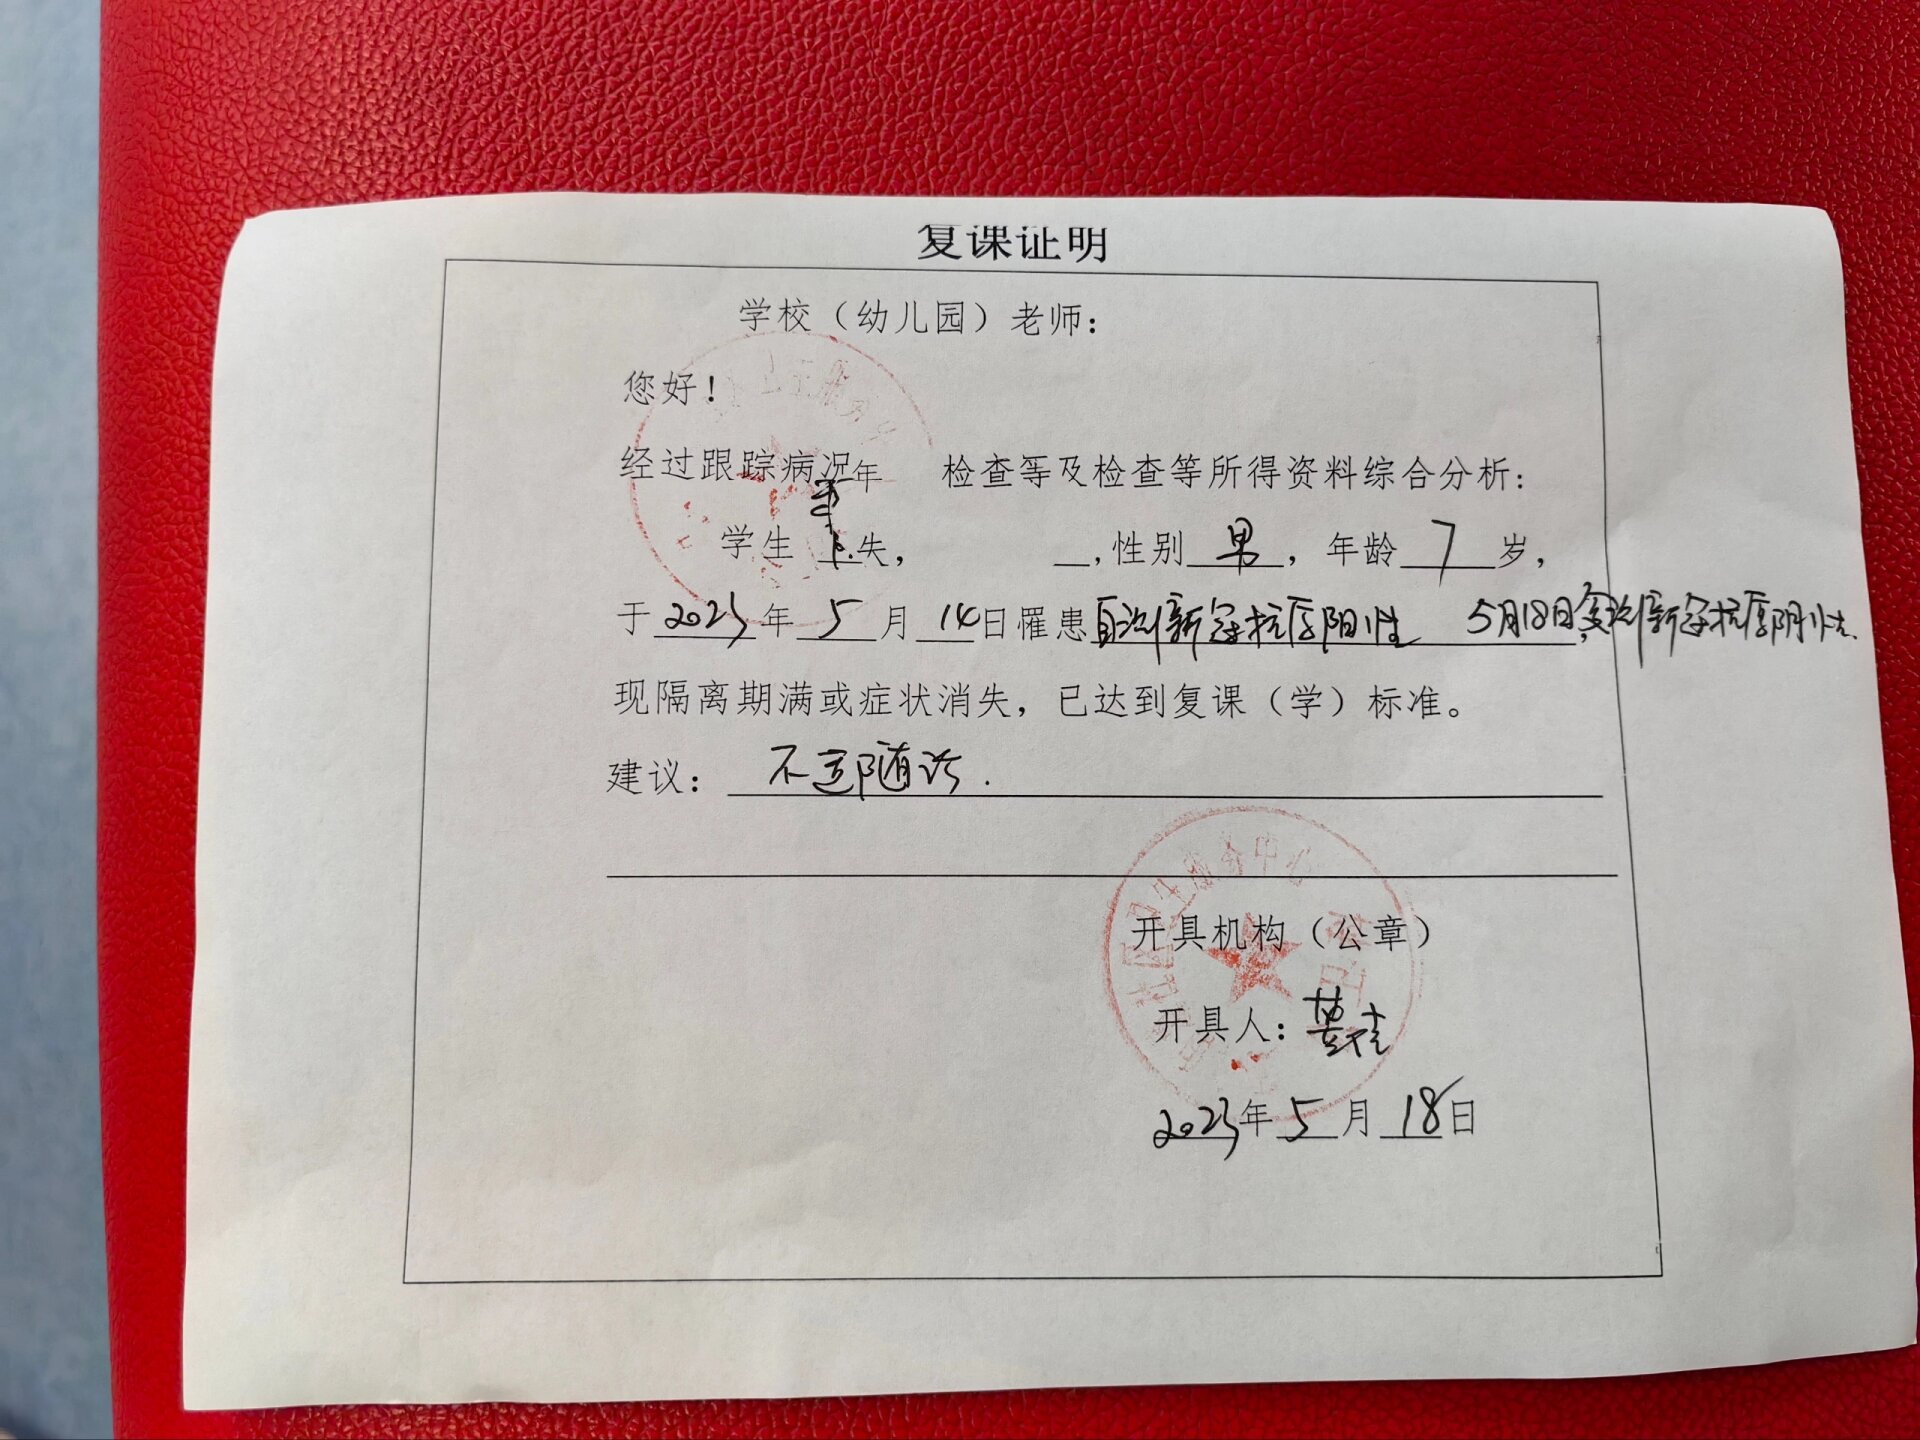 复课证明
学校（幼儿园）老师：
您好！
经过跟踪病况年 检查等及检查等所得资料综合分析：
学生 失， ，性别 男 ，年龄 7 岁，
于 2023 年 5 月 14 日罹患 自测新冠抗原阳性 5月18日复测新冠抗原阴性.
现隔离期满或症状消失，已达到复课（学）标准。
建议： 不适随诊.
开具机构（公章）
开具人：
2023 年 5 月 18 日